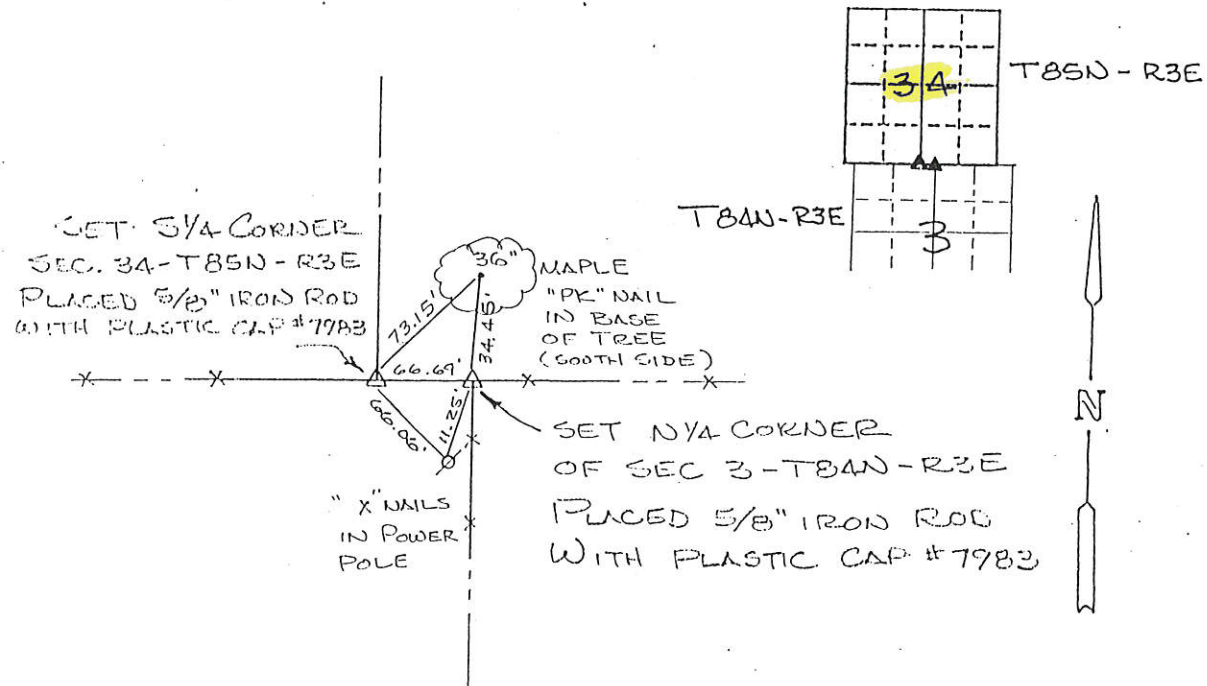 34
T85N - R3E
T84N-R3E
3
SET S1/4 CORNER
SEC. 34-T85N-R3E
PLACED 5/8" IRON ROD
WITH PLASTIC CAP #7983
36"
MAPLE
"PK" NAIL
IN BASE
OF TREE
(SOUTH SIDE)
73.15'
34.45'
66.69'
66.06'
11.25'
"X" NAILS
IN POWER
POLE
SET N1/4 CORNER
OF SEC 3-T84N-R3E
PLACED 5/8" IRON ROD
WITH PLASTIC CAP #7983
N